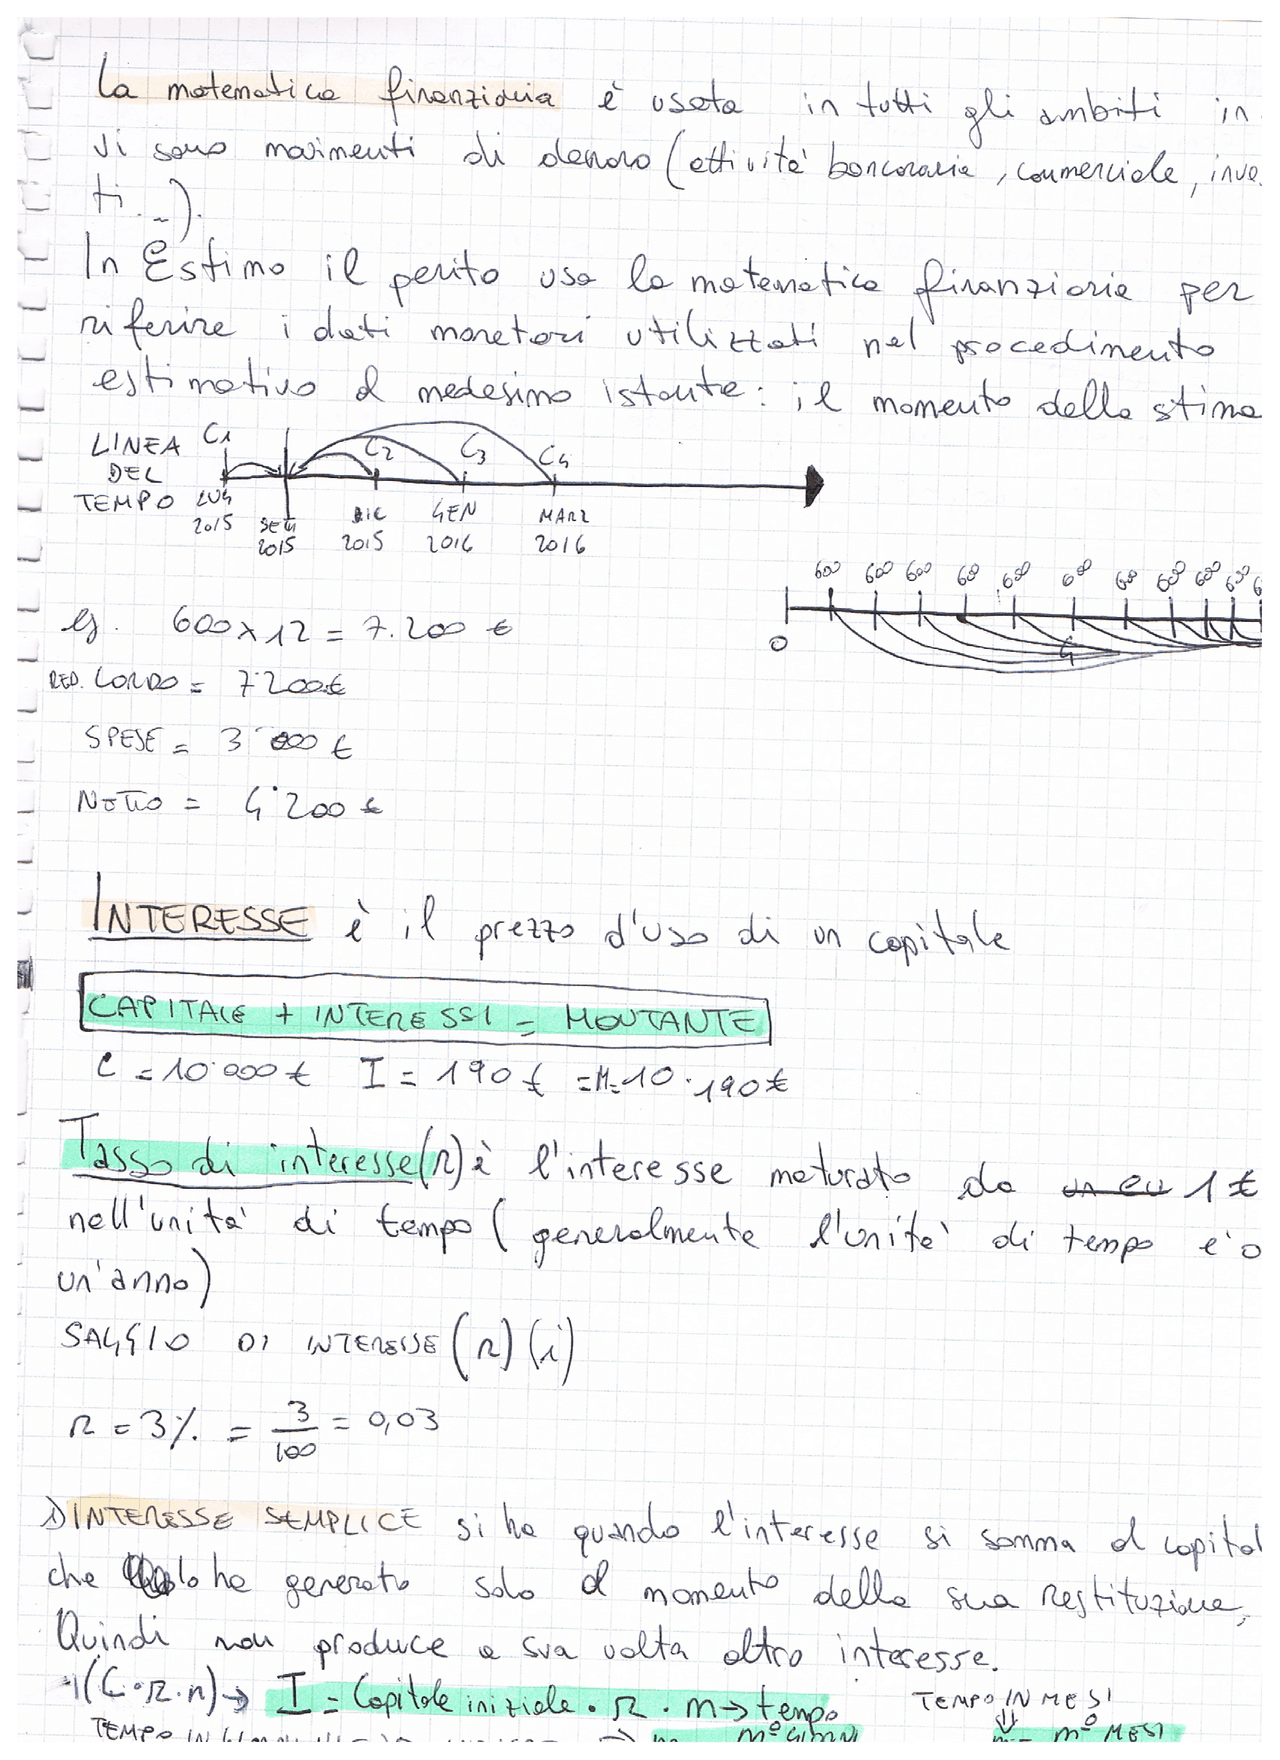 La matematica finanziaria è usata in tutti gli ambiti in
vi sono movimenti di denaro (attività bancaria, commerciale, inve
ti...).
In Estimo il perito usa la matematica finanziaria per
riferire i dati monetari utilizzati nel procedimento
estimativo al medesimo istante: il momento della stima
LINEA DEL TEMPO
C1 C2 C3 C4
LUG 2015 SETT 2015 DIC 2015 GEN 2016 MARZ 2016
600 600 600 600 600 600 600 600 600 600 6
0
eg. 600 x 12 = 7.200 €
RED. LORDO = 7'200 €
SPESE = 3'000 €
NETTO = 4'200 €
INTERESSE è il prezzo d'uso di un capitale
CAPITALE + INTERESSI = MONTANTE
C = 10'000 € I = 190 € = M = 10.190 €
Tasso di interesse (r) è l'interesse maturato da 1 €
nell'unità di tempo (generalmente l'unità di tempo è
un'anno)
SAGGIO DI INTERESSE (r) (i)
r = 3% = 3/100 = 0,03
1) INTERESSE SEMPLICE si ha quando l'interesse si somma al capital
che lo ha generato solo al momento della sua restituzione,
Quindi non produce a sua volta altro interesse.
(C·r·n) → I = Capitale iniziale · r · n → tempo
TEMPO IN MESI
TEMPO IN GIORNI
n° GIORNI
n° MESI